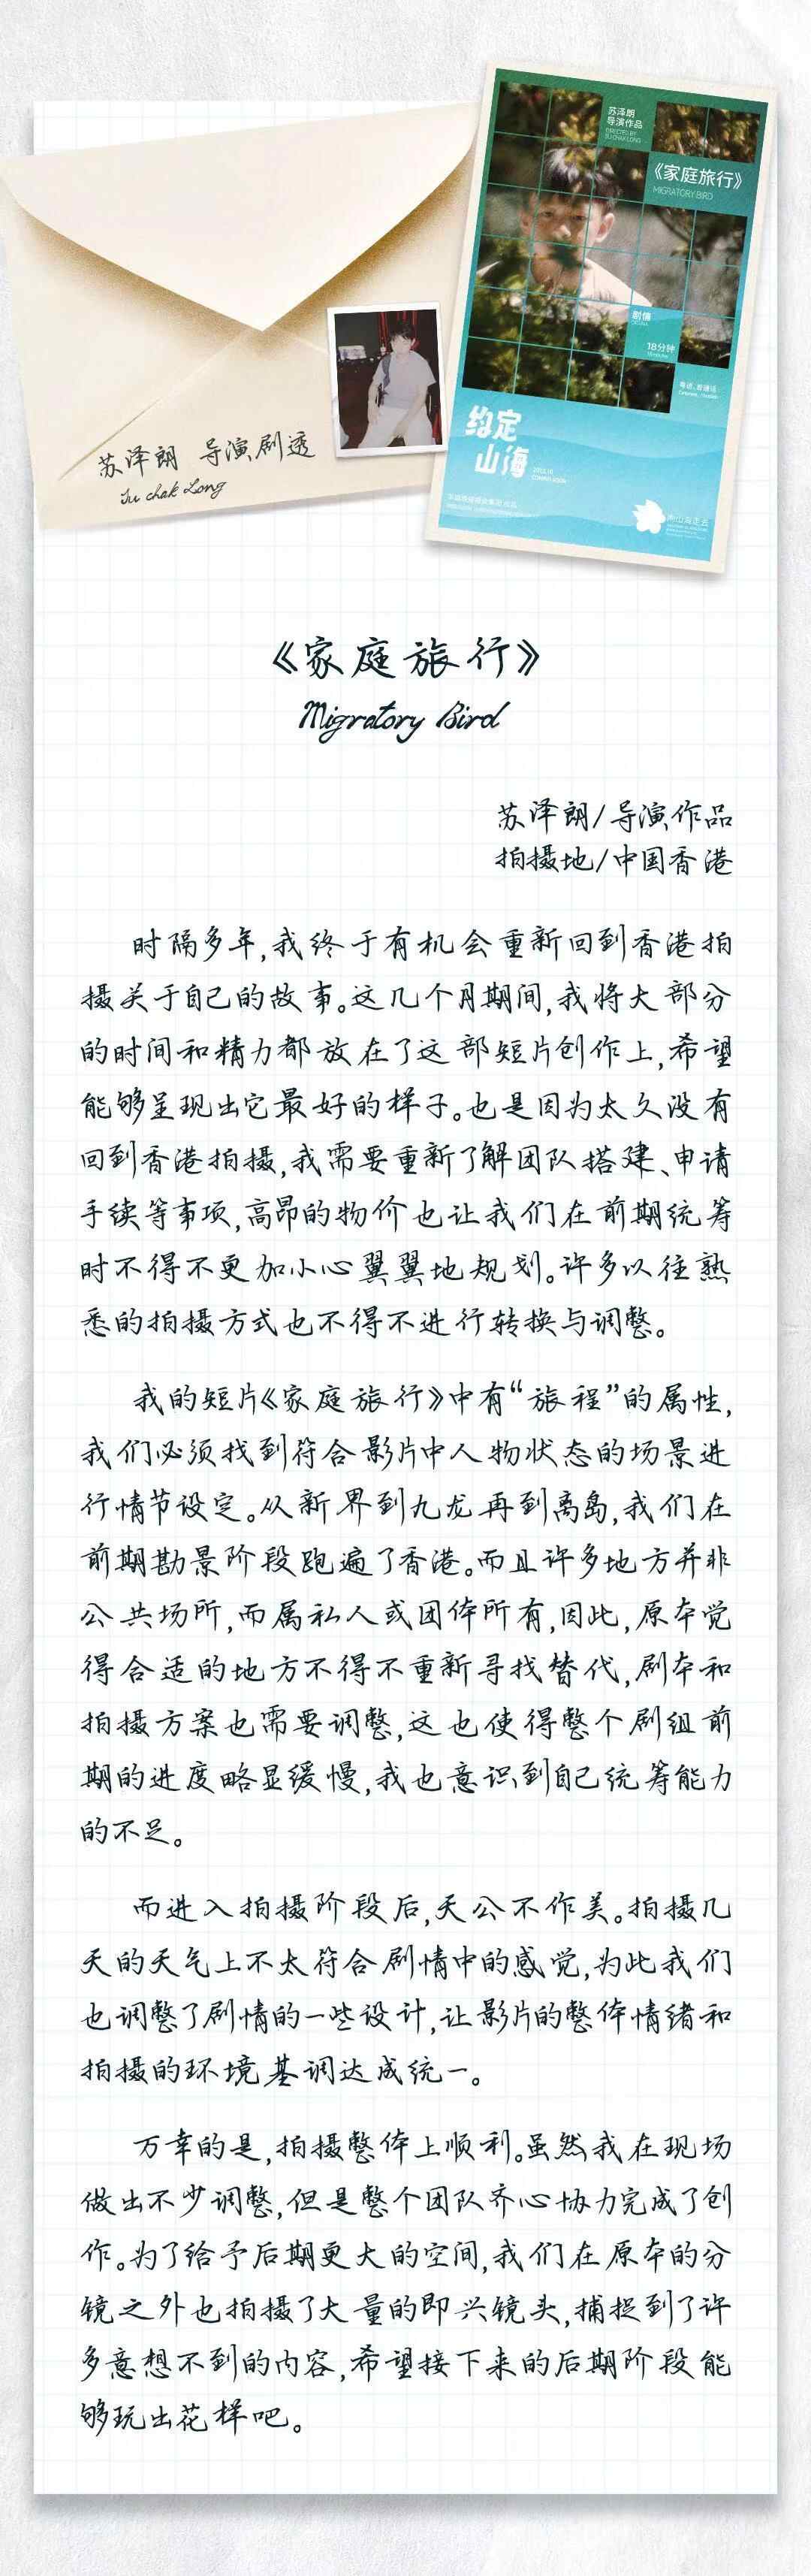 苏泽朗
导演作品
DIRECTED BY
SU CHAK LONG
《家庭旅行》
MIGRATORY BIRD
剧情
18分钟
粤语、普通话
约定
山海
COMING SOON
苏泽朗 导演剧透
Su chak Long
《家庭旅行》
Migratory Bird
苏泽朗/导演作品
拍摄地/中国香港
时隔多年,我终于有机会重新回到香港拍
摄关于自己的故事。这几个月期间,我将大部分
的时间和精力都放在了这部短片创作上,希望
能够呈现出它最好的样子。也是因为太久没有
回到香港拍摄,我需要重新了解团队搭建、申请
手续等事项,高昂的物价也让我们在前期统筹
时不得不更加小心翼翼地规划。许多以往熟
悉的拍摄方式也不得不进行转换与调整。
我的短片《家庭旅行》中有“旅程”的属性,
我们必须找到符合影片中人物状态的场景进
行情节设定。从新界到九龙再到离岛,我们在
前期勘景阶段跑遍了香港。而且许多地方并非
公共场所,而属私人或团体所有,因此,原本觉
得合适的地方不得不重新寻找替代,剧本和
拍摄方案也需要调整,这也使得整个剧组前
期的进度略显缓慢,我也意识到自己统筹能力
的不足。
而进入拍摄阶段后,天公不作美。拍摄几
天的天气上不太符合剧情中的感觉,为此我们
也调整了剧情的一些设计,让影片的整体情绪和
拍摄的环境基调达成统一。
万幸的是,拍摄整体上顺利。虽然我在现场
做出不少调整,但是整个团队齐心协力完成了创
作。为了给予后期更大的空间,我们在原本的分
镜之外也拍摄了大量的即兴镜头,捕捉到了许
多意想不到的内容,希望接下来的后期阶段能
够玩出花样吧。